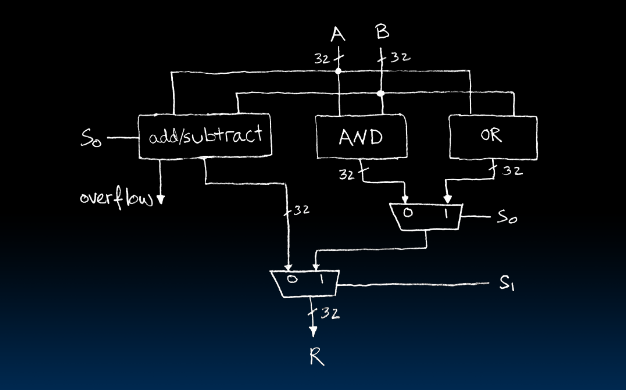 A B
32 32
S₀ add/subtract AND OR
overflow 32 32
32 0 1 S₀
0 1 S₁
32
R